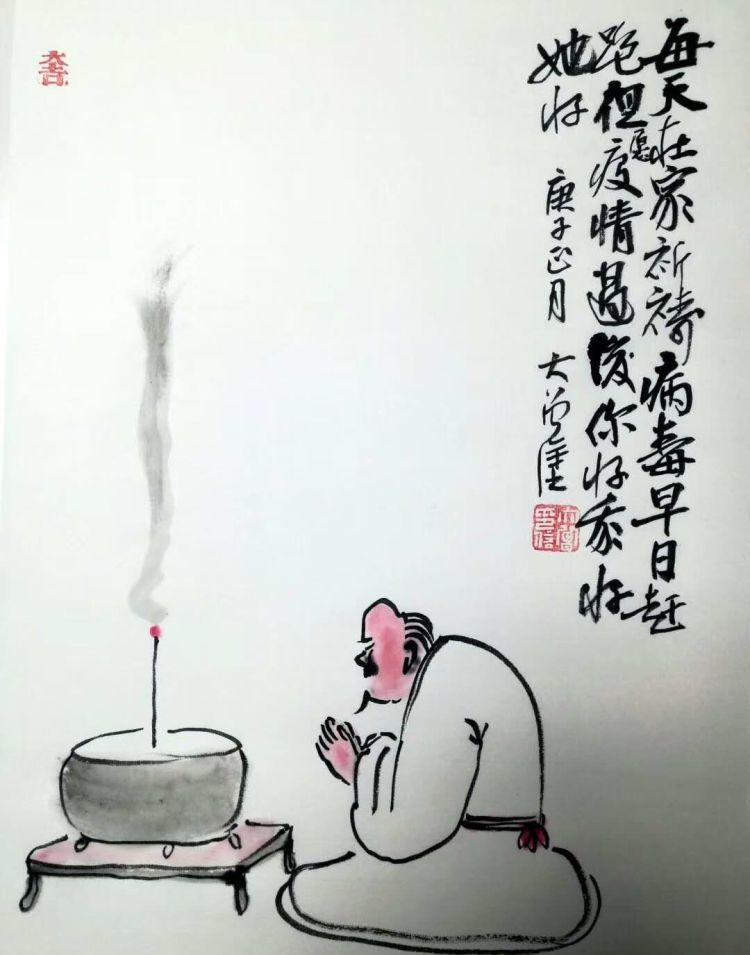 每天在家祈祷病毒早日赶
跑但愿疫情過後你好我好
她好 庚子正月 大
大吉